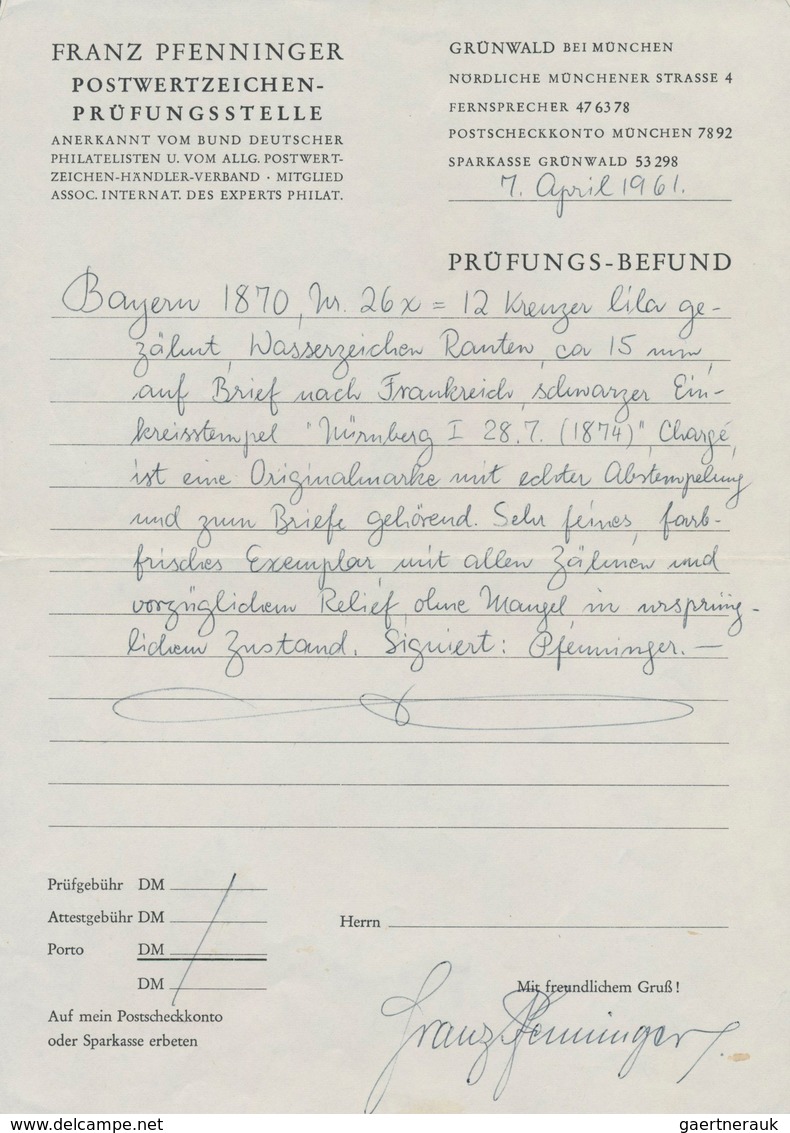 FRANZ PFENNINGER
POSTWERTZEICHEN-
PRÜFUNGSSTELLE
ANERKANNT VOM BUND DEUTSCHER
PHILATELISTEN U. VOM ALLG. POSTWERT-
ZEICHEN-HÄNDLER-VERBAND · MITGLIED
ASSOC. INTERNAT. DES EXPERTS PHILAT.
GRÜNWALD BEI MÜNCHEN
NÖRDLICHE MÜNCHENER STRASSE 4
FERNSPRECHER 47 63 78
POSTSCHECKKONTO MÜNCHEN 78 92
SPARKASSE GRÜNWALD 53 298
7. April 1961.
PRÜFUNGS-BEFUND
Bayern 1870, Nr. 26x = 12 Kreuzer lila ge-
zähnt, Wasserzeichen Rauten, ca 15 mm,
auf Brief nach Frankreich, schwarzer Ein-
kreisstempel "Nürnberg I 28.7. (1874)", Chargé,
ist eine Originalmarke mit echter Abstempelung
und zum Briefe gehörend. Sehr feines, farb-
frisches Exemplar mit allen Zähnen und
vorzüglichem Relief, ohne Mangel in ursprüng-
lichem Zustand. Signiert: Pfenninger. —
Prüfgebühr DM
Attestgebühr DM
Porto DM
DM
Auf mein Postscheckkonto
oder Sparkasse erbeten
Herrn
Mit freundlichem Gruß!
Franz Pfenninger
gaertnerauk